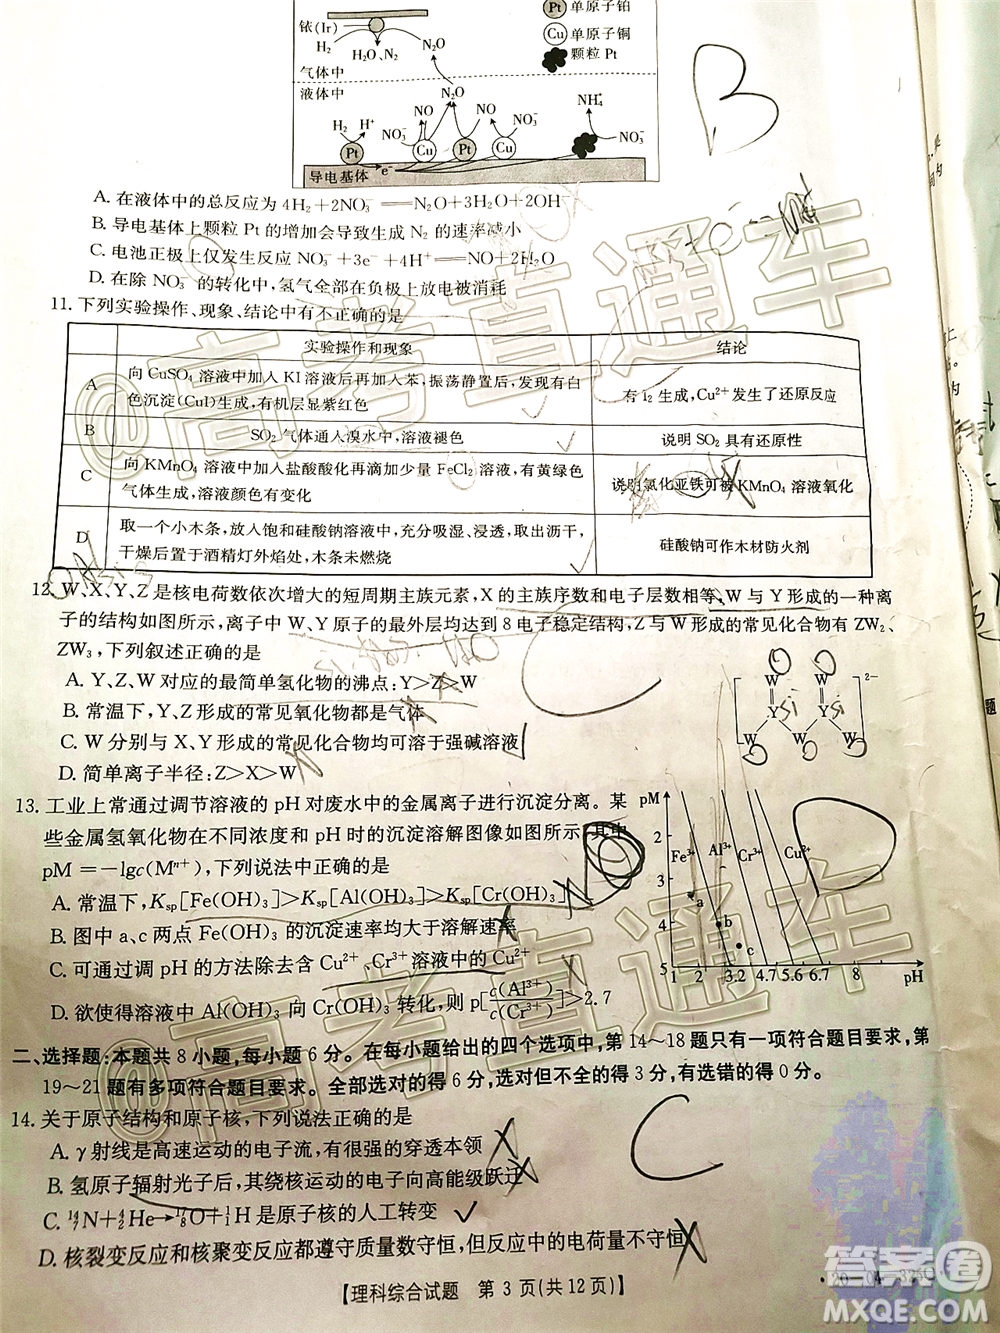 Pt 单原子铂
铱(Ir)
Cu 单原子铜
H₂ H₂O、N₂ N₂O
颗粒 Pt
气体中
液体中 N₂O
NO NO NH₄⁺
H₂ H⁺ NO₃⁻ NO₃⁻ NO₃⁻
Pt Cu Pt Cu
导电基体 e⁻
A. 在液体中的总反应为 4H₂+2NO₃⁻══N₂O+3H₂O+2OH⁻
B. 导电基体上颗粒 Pt 的增加会导致生成 N₂ 的速率减小
C. 电池正极上仅发生反应 NO₃⁻+3e⁻+4H⁺══NO+2H₂O
D. 在除 NO₃⁻ 的转化中,氢气全部在负极上放电被消耗
11. 下列实验操作、现象、结论中有不正确的是
实验操作和现象 结论
A 向 CuSO₄ 溶液中加入 KI 溶液后再加入苯,振荡静置后,发现有白
色沉淀(CuI)生成,有机层显紫红色 有 I₂ 生成,Cu²⁺ 发生了还原反应
B SO₂ 气体通入溴水中,溶液褪色 说明 SO₂ 具有还原性
C 向 KMnO₄ 溶液中加入盐酸酸化再滴加少量 FeCl₂ 溶液,有黄绿色
气体生成,溶液颜色有变化 说明氯化亚铁可被 KMnO₄ 溶液氧化
D 取一个小木条,放入饱和硅酸钠溶液中,充分吸湿、浸透,取出沥干,
干燥后置于酒精灯外焰处,木条未燃烧 硅酸钠可作木材防火剂
12. W、X、Y、Z 是核电荷数依次增大的短周期主族元素,X 的主族序数和电子层数相等,W 与 Y 形成的一种离
子的结构如图所示,离子中 W、Y 原子的最外层均达到 8 电子稳定结构,Z 与 W 形成的常见化合物有 ZW₂、
ZW₃,下列叙述正确的是
A. Y、Z、W 对应的最简单氢化物的沸点:Y>Z>W
B. 常温下,Y、Z 形成的常见氧化物都是气体
C. W 分别与 X、Y 形成的常见化合物均可溶于强碱溶液
D. 简单离子半径:Z>X>W
W W 2−
Y Y
W W W
13. 工业上常通过调节溶液的 pH 对废水中的金属离子进行沉淀分离。某
些金属氢氧化物在不同浓度和 pH 时的沉淀溶解图像如图所示,其中
pM=−lgc(Mⁿ⁺),下列说法中正确的是
A. 常温下,Ksp[Fe(OH)₃]>Ksp[Al(OH)₃]>Ksp[Cr(OH)₃]
B. 图中 a、c 两点 Fe(OH)₃ 的沉淀速率均大于溶解速率
C. 可通过调 pH 的方法除去含 Cu²⁺、Cr³⁺ 溶液中的 Cu²⁺
D. 欲使得溶液中 Al(OH)₃ 向 Cr(OH)₃ 转化,则 p[c(Al³⁺)/c(Cr³⁺)]>2.7
pM
2
Fe³⁺ Al³⁺ Cr³⁺ Cu²⁺
3
a
4 b
c
5
1 2 3.2 4.7 5.6 6.7 8 pH
二、选择题:本题共 8 小题,每小题 6 分。在每小题给出的四个选项中,第 14～18 题只有一项符合题目要求,第
19～21 题有多项符合题目要求。全部选对的得 6 分,选对但不全的得 3 分,有选错的得 0 分。
14. 关于原子结构和原子核,下列说法正确的是
A. γ 射线是高速运动的电子流,有很强的穿透本领
B. 氢原子辐射光子后,其绕核运动的电子向高能级跃迁
C. ¹⁴₇N+⁴₂He→¹⁷₈O+¹₁H 是原子核的人工转变
D. 核裂变反应和核聚变反应都遵守质量数守恒,但反应中的电荷量不守恒
【理科综合试题 第 3 页(共 12 页)】
@高考直通车
@高考直通车
B
C
C
D
C
答案圈
MXQE.COM